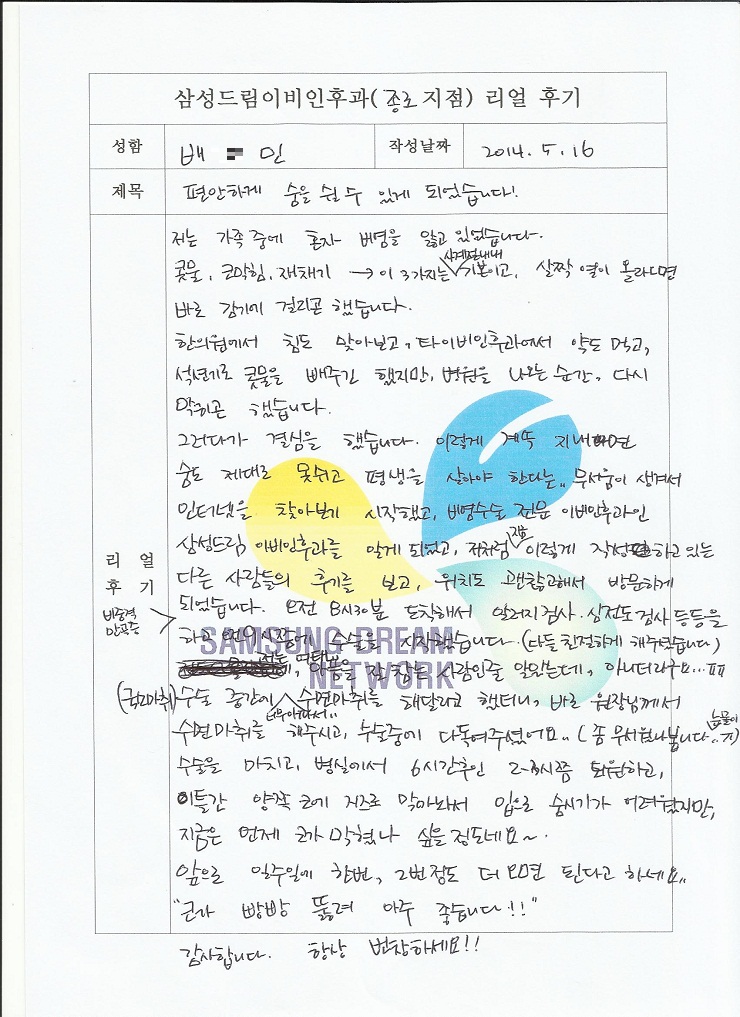 삼성드림이비인후과( 종로 지점) 리얼 후기
성함 배 민 작성날짜 2014. 5. 16
제목 편안하게 숨을 쉴 수 있게 되었습니다!
저는 가족중에 혼자 비염을 앓고 있었습니다.
사계절내내
콧물, 코막힘, 재채기 → 이 3가지는 기본이고, 살짝 열이 올라오면
바로 감기에 걸리곤 했습니다.
한의원에서 침도 맞아보고, 타이비인후과에서 약도 먹고,
석션기로 콧물을 빼주긴 했지만, 병원을 나오는 순간, 다시
막히곤 했습니다.
그러다가 결심을 했습니다. 이렇게 계속 지내면
숨도 제대로 못쉬고 평생을 살아야 한다는.. 무서움이 생겨서
인터넷을 찾아보기 시작했고, 비염수술 전문 이비인후과인
삼성드림 이비인후과를 알게 되었고, 저처럼 이렇게 작성하고 있는
다른 사람들의 후기를 보고, 위치도 괜찮고해서 방문하게
되었습니다. 오전 8시30분 도착해서 알러지검사. 심전도검사 등등을
리얼
후기
비중격
만곡증
하고 오전 9시쯤에 수술을 시작했습니다. (다들 친절하게 해주셨습니다)
저는 여태껏
아픔을 잘 참는 사람인줄 알았는데, 아니더라구요... ㅠㅠ
(국소마취) 수술 중간에 수면마취를 해달라고 했더니, 바로 원장님께서
너무아파서..
수면마취를 해주시고, 수술중에 다독여주셨어요.. (좀 무서웠나봅니다.. 눈물이 ㅠ)
수술을 마치고, 병실에서 6시간후인 2-3시쯤 퇴원하고,
이틀간 양쪽 코에 거즈로 막아놔서 입으로 숨쉬기가 어려웠지만,
지금은 언제 코가 막혔나 싶을 정도네요~
앞으로 일주일에 한번, 2번정도 더 오면 된다고 하세요..
"코가 빵빵 뚫려 아주 좋습니다!!"
감사합니다. 항상 번창하세요!!
SAMSUNG DREAM
NETWORK